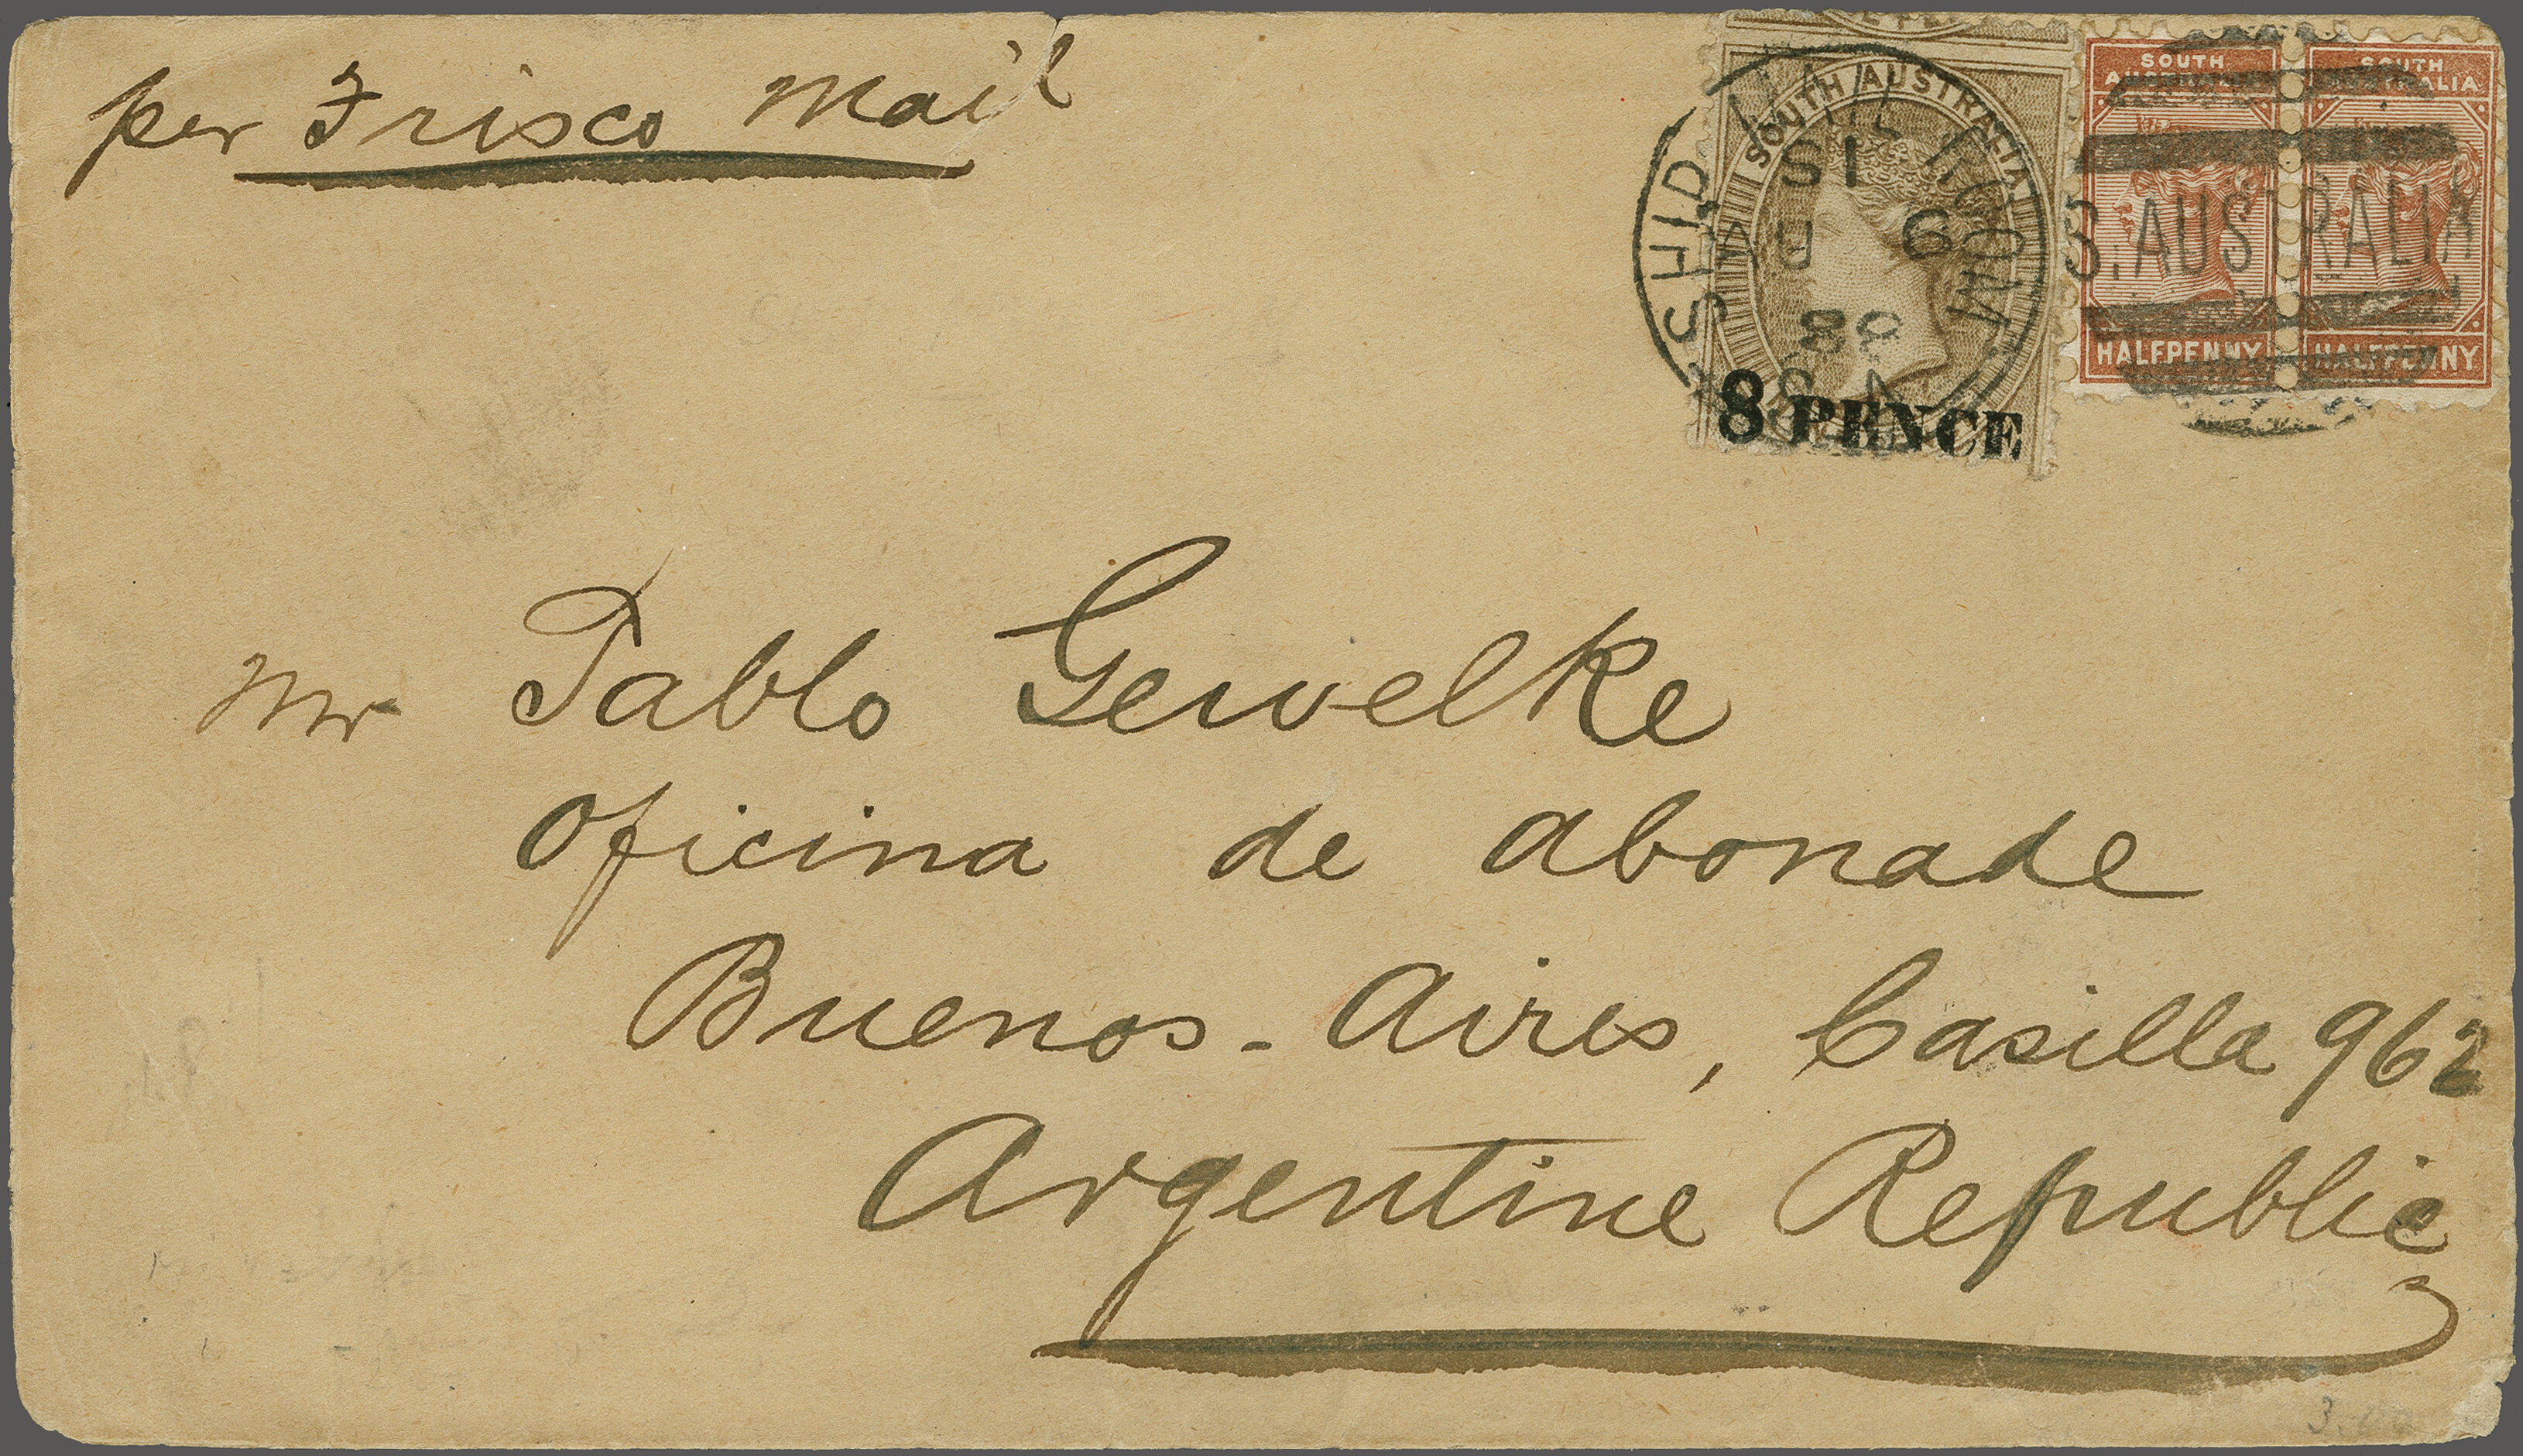 per Frisco Mail
SOUTH AUSTRALIA
8 PENCE
SOUTH AUSTRALIA
HALFPENNY
SOUTH AUSTRALIA
HALFPENNY
SHIP MAIL ROOM
S. AUSTRALIA
Mr Pablo Gewelke
Oficina de abonade
Buenos-Aires, Casilla 962
Argentine Republic